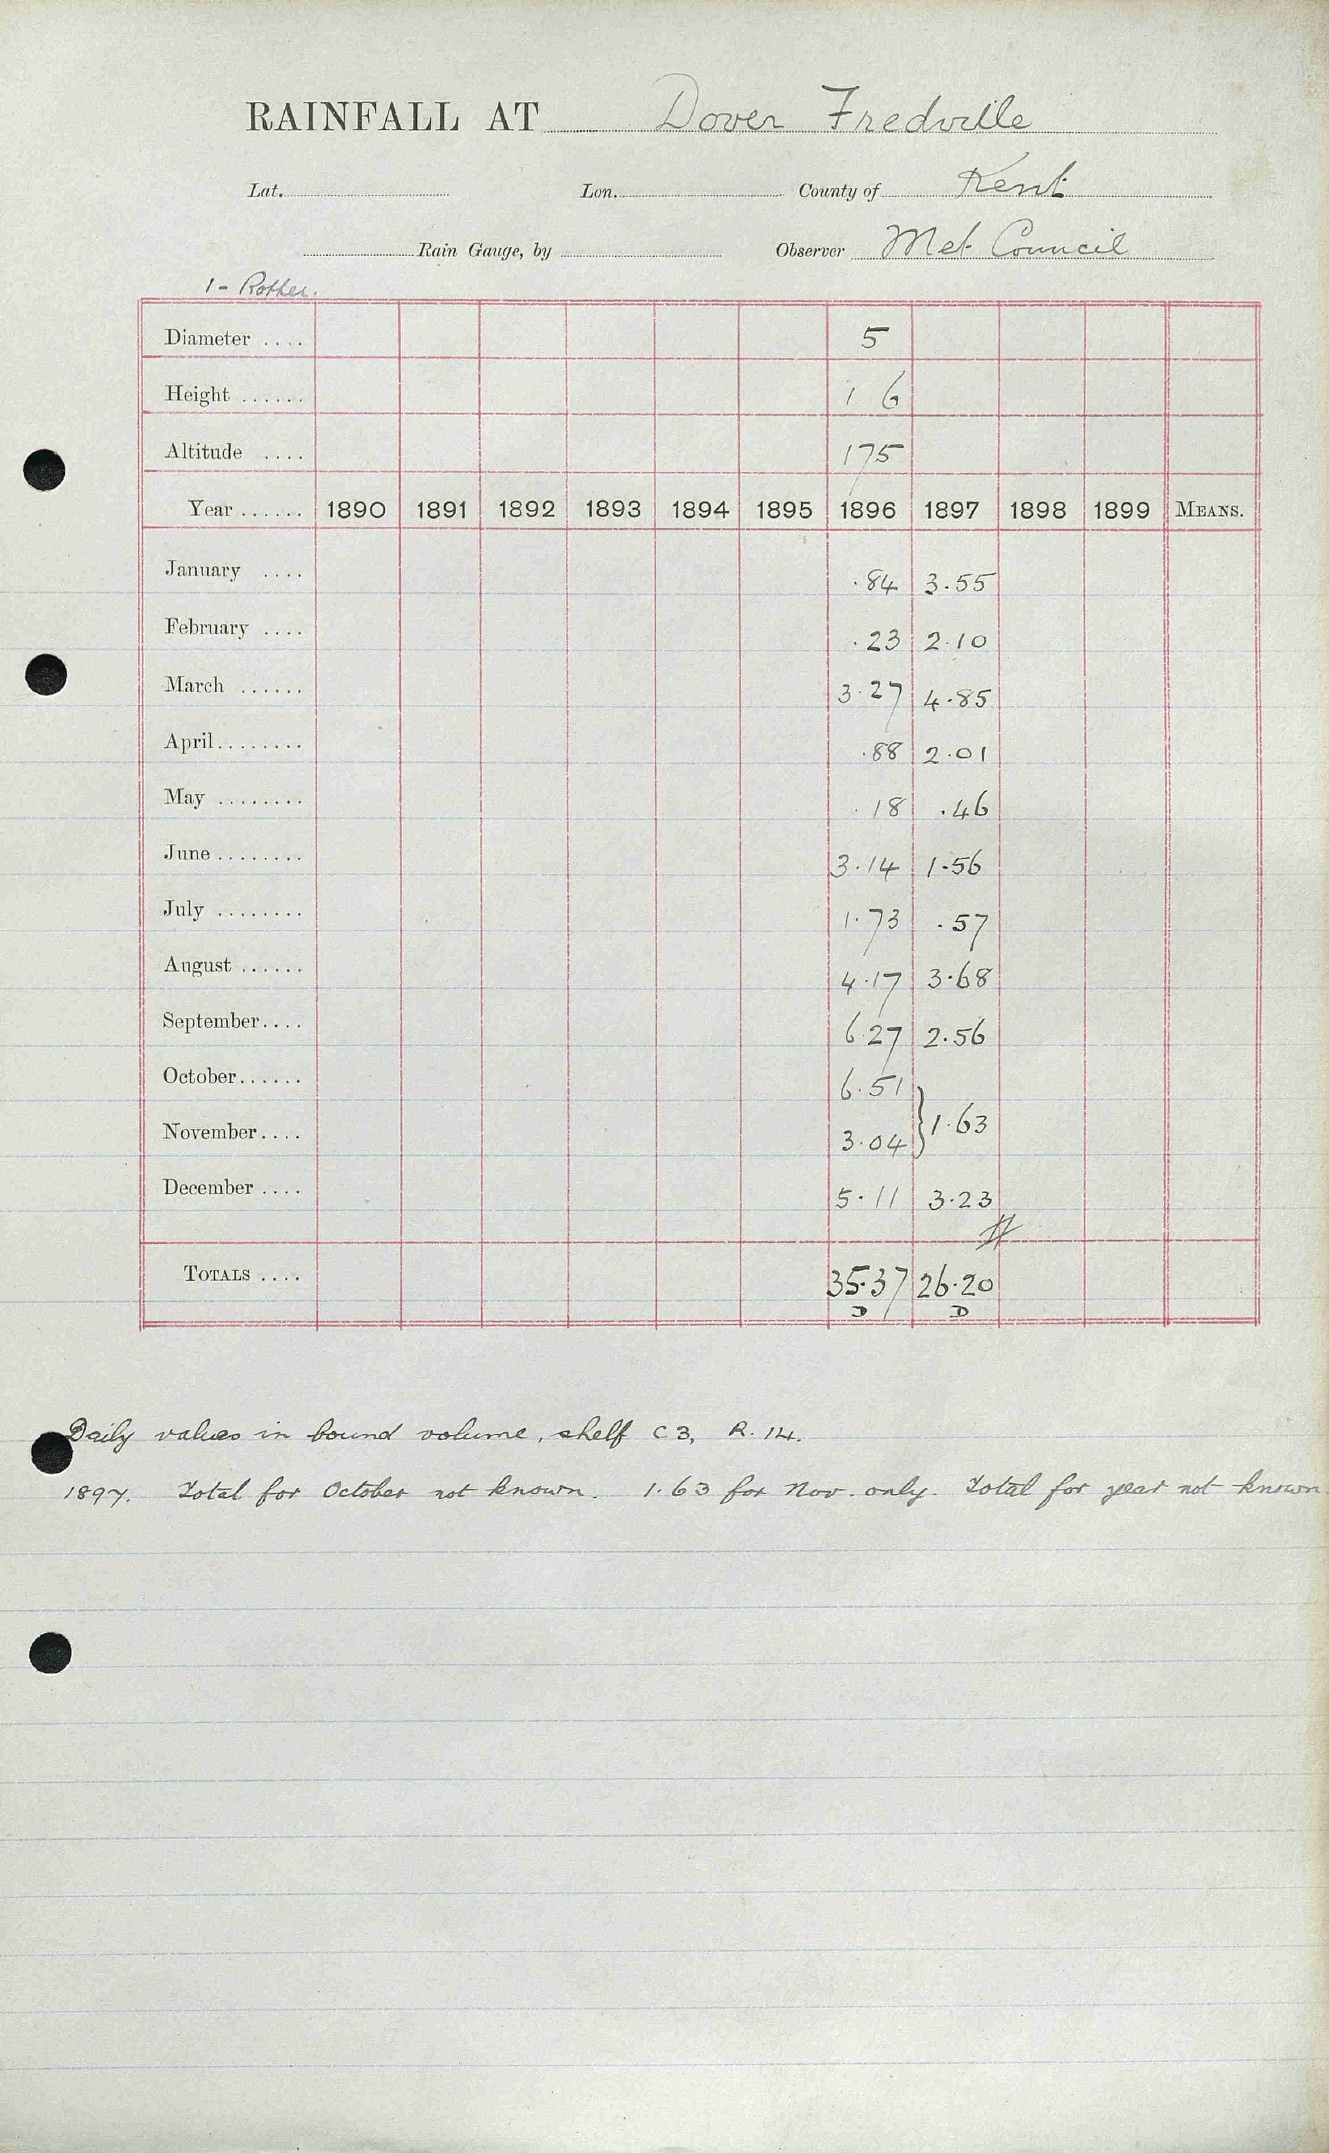 RAINFALL AT Dover Fredville
Lat. Lon. County of Kent
Rain Gauge, by Observer Met Council
1 - Rother.
Diameter .... 5
Height ...... 1 6
Altitude .... 175
Year ...... 1890 1891 1892 1893 1894 1895 1896 1897 1898 1899 MEANS.
January .... .84 3.55
February .... .23 2.10
March ...... 3.27 4.85
April........ .88 2.01
May ........ .18 .46
June ........ 3.14 1.56
July ........ 1.73 .57
August ...... 4.17 3.68
September.... 6.27 2.56
October...... 6.51
} 1.63
November.... 3.04
December .... 5.11 3.23
#
TOTALS .... 35.37 26.20
D D
Daily values in bound volume, shelf C3, R. 14.
1897. Total for October not known. 1.63 for Nov. only. Total for year not known